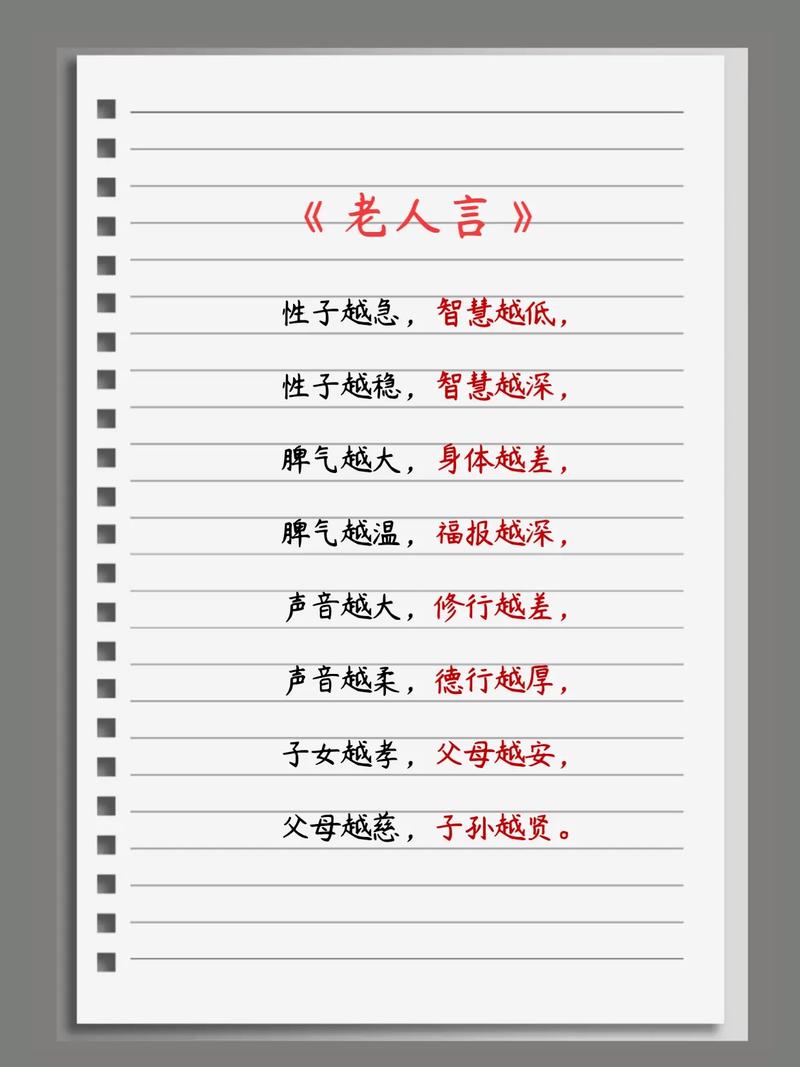 《老人言》
性子越急，智慧越低，
性子越稳，智慧越深，
脾气越大，身体越差，
脾气越温，福报越深，
声音越大，修行越差，
声音越柔，德行越厚，
子女越孝，父母越安，
父母越慈，子孙越贤。